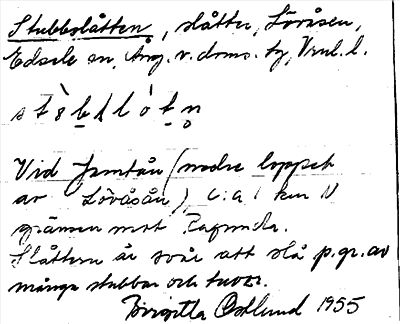 Stubbslåtten, slåtter, Lövåsen,
Edsele sn, Ång. v. doms. tg, Vnrl. l.
Vid Jemtån (nedre loppet
av Lövåsån), c:a 1 km N
gränsen mot Ragunda.
Slåttern är svår att slå p.gr.av
många stubbar och tuvor.
Birgitta Östlund 1955